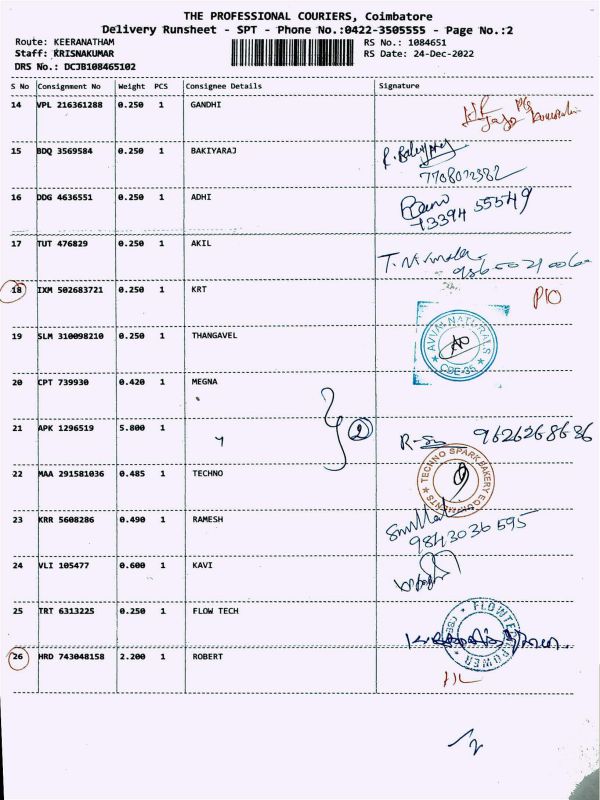 THE PROFESSIONAL COURIERS, Coimbatore
Delivery Runsheet - SPT - Phone No.:0422-3505555 - Page No.:2
Route: KEERANATHAM
RS No.: 1084651
Staff: KRISNAKUMAR
RS Date: 24-Dec-2022
DRS No.: DCJB108465102
S No Consignment No Weight PCS Consignee Details Signature
14 VPL 216361288 0.250 1 GANDHI
15 BDQ 3569584 0.250 1 BAKIYARAJ
7708072382
16 DDG 4636551 0.250 1 ADHI
13394 55549
17 TUT 476829 0.250 1 AKIL
18 IXM 502683721 0.250 1 KRT
P10
19 SLM 310098210 0.250 1 THANGAVEL
AVIVA NATURALS
CBE-35
20 CPT 739930 0.420 1 MEGNA
21 APK 1296519 5.800 1
2
9626268686
22 MAA 291581036 0.485 1 TECHNO
TECHNO SPARK BAKERY EQUIPMENTS
23 KRR 5608286 0.490 1 RAMESH
9843036595
24 VLI 105477 0.600 1 KAVI
25 TRT 6313225 0.250 1 FLOW TECH
26 HRD 743048158 2.200 1 ROBERT